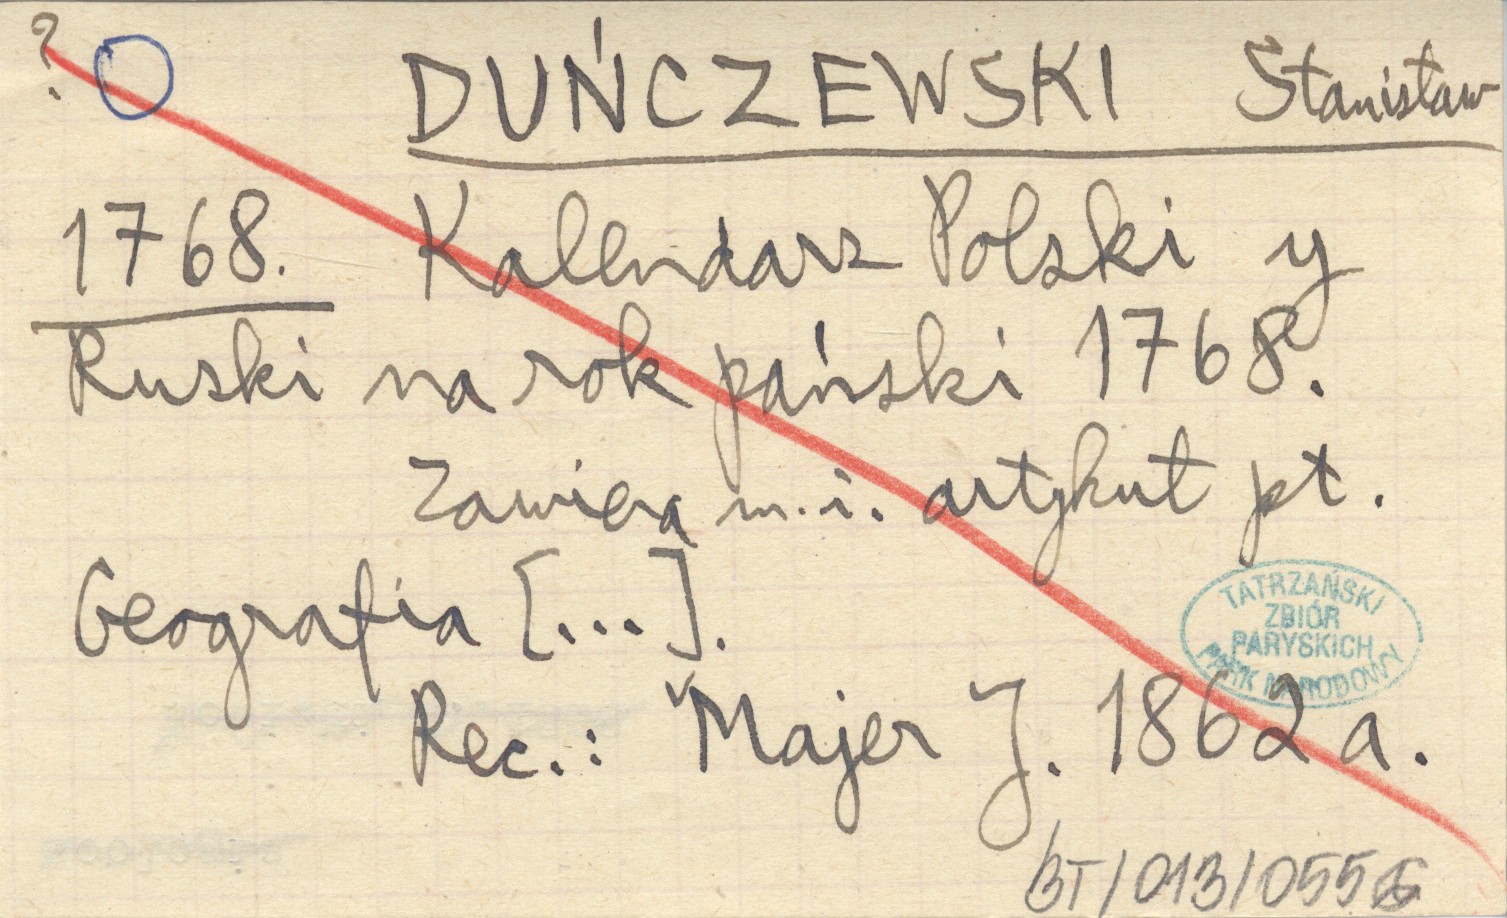 ?
DUŃCZEWSKI Stanisław
1768. Kalendarz Polski y
Ruski na rok pański 1768.
Zawiera m.i. artykuł pt.
Geografia [...].
TATRZAŃSKI
ZBIÓR
PARYSKICH
PARK NARODOWY
Rec.: Majer J. 1862a.
BT/013/0556